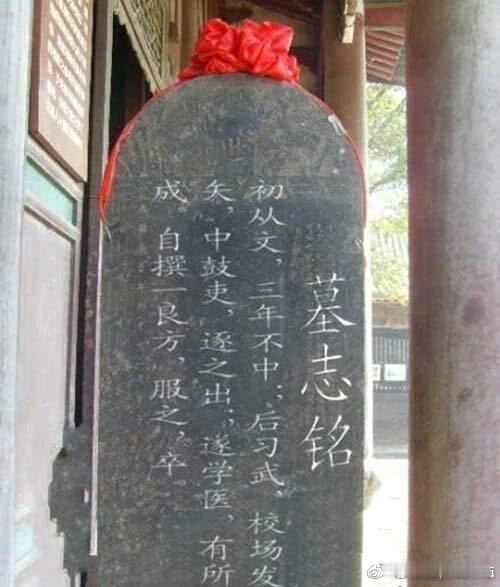 墓志铭
初从文，三年不中；后习武，校场发
矢，中鼓吏，逐之出；遂学医，有所
成，自撰一良方，服之，卒